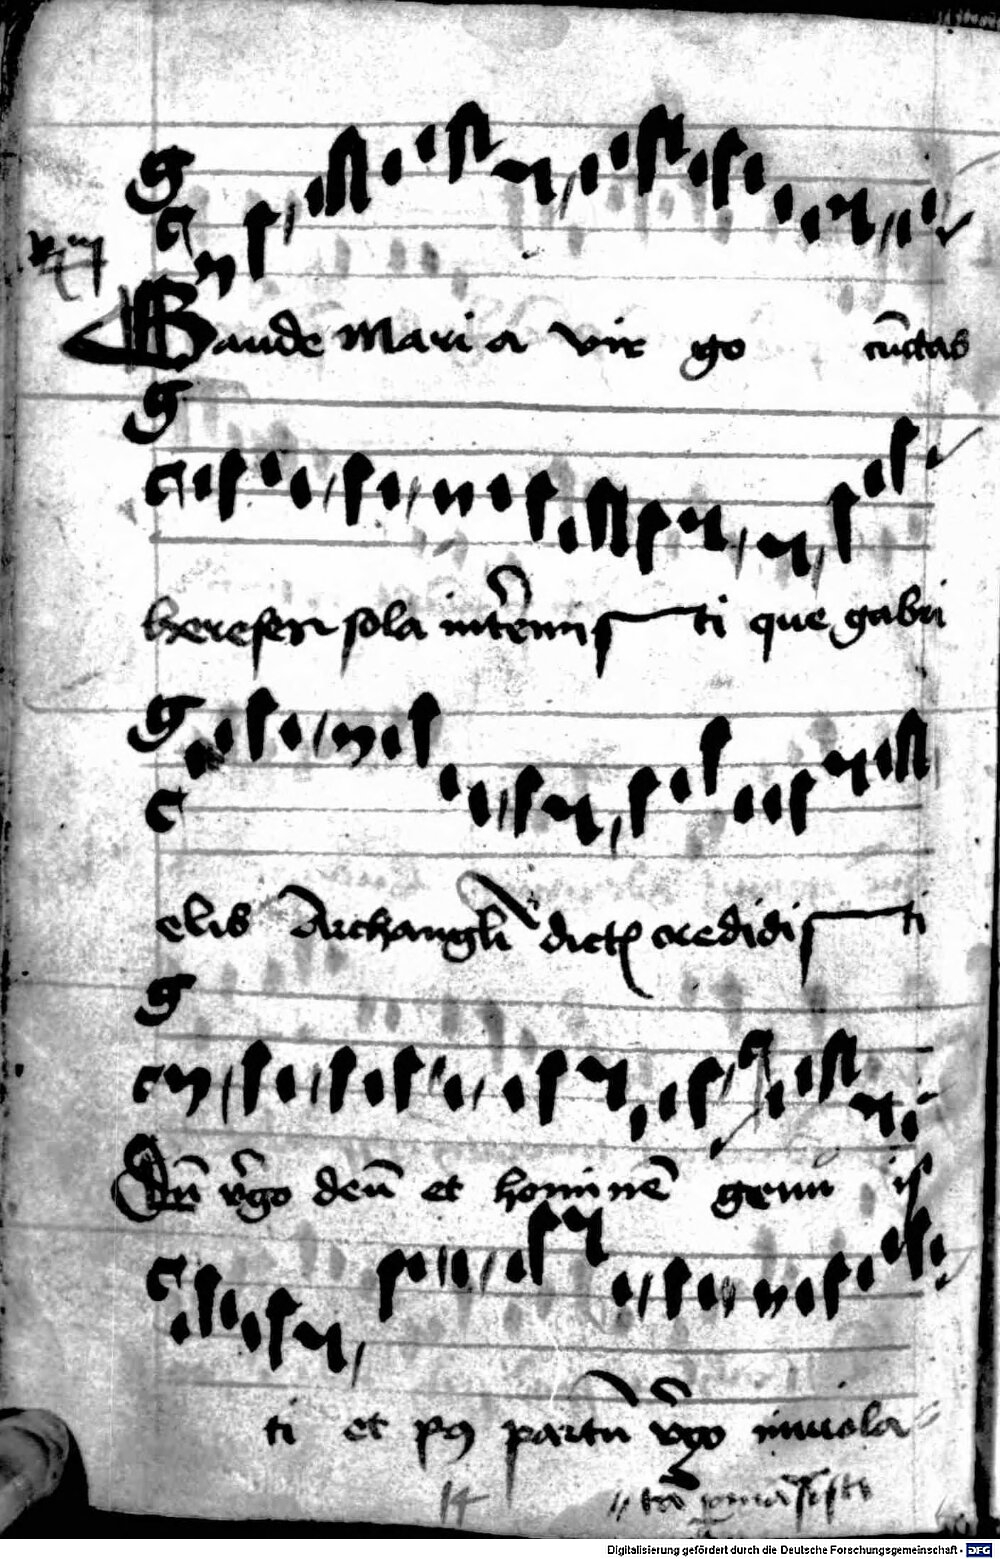 Gaude Maria vir go cūctas
heresen sola int̄emis ti que gabri
elis Archangl̄i dict credidis ti
Dū v̄go deū et hominē genu is
ti et p9 partū v̄go inuiola
tā
Digitalisierung gefördert durch die Deutsche Forschungsgemeinschaft - DFG